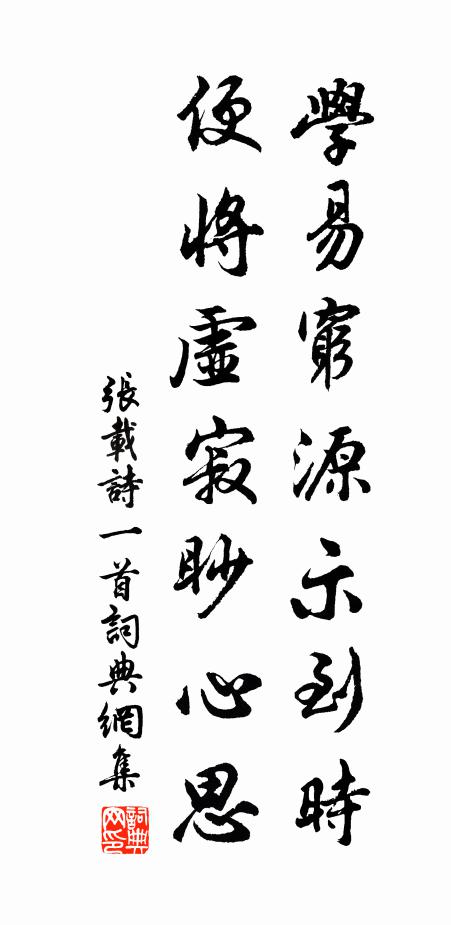 學易窮源示到時
便將虛寂眇心思
張載詩一首詞典網集
詞典網印